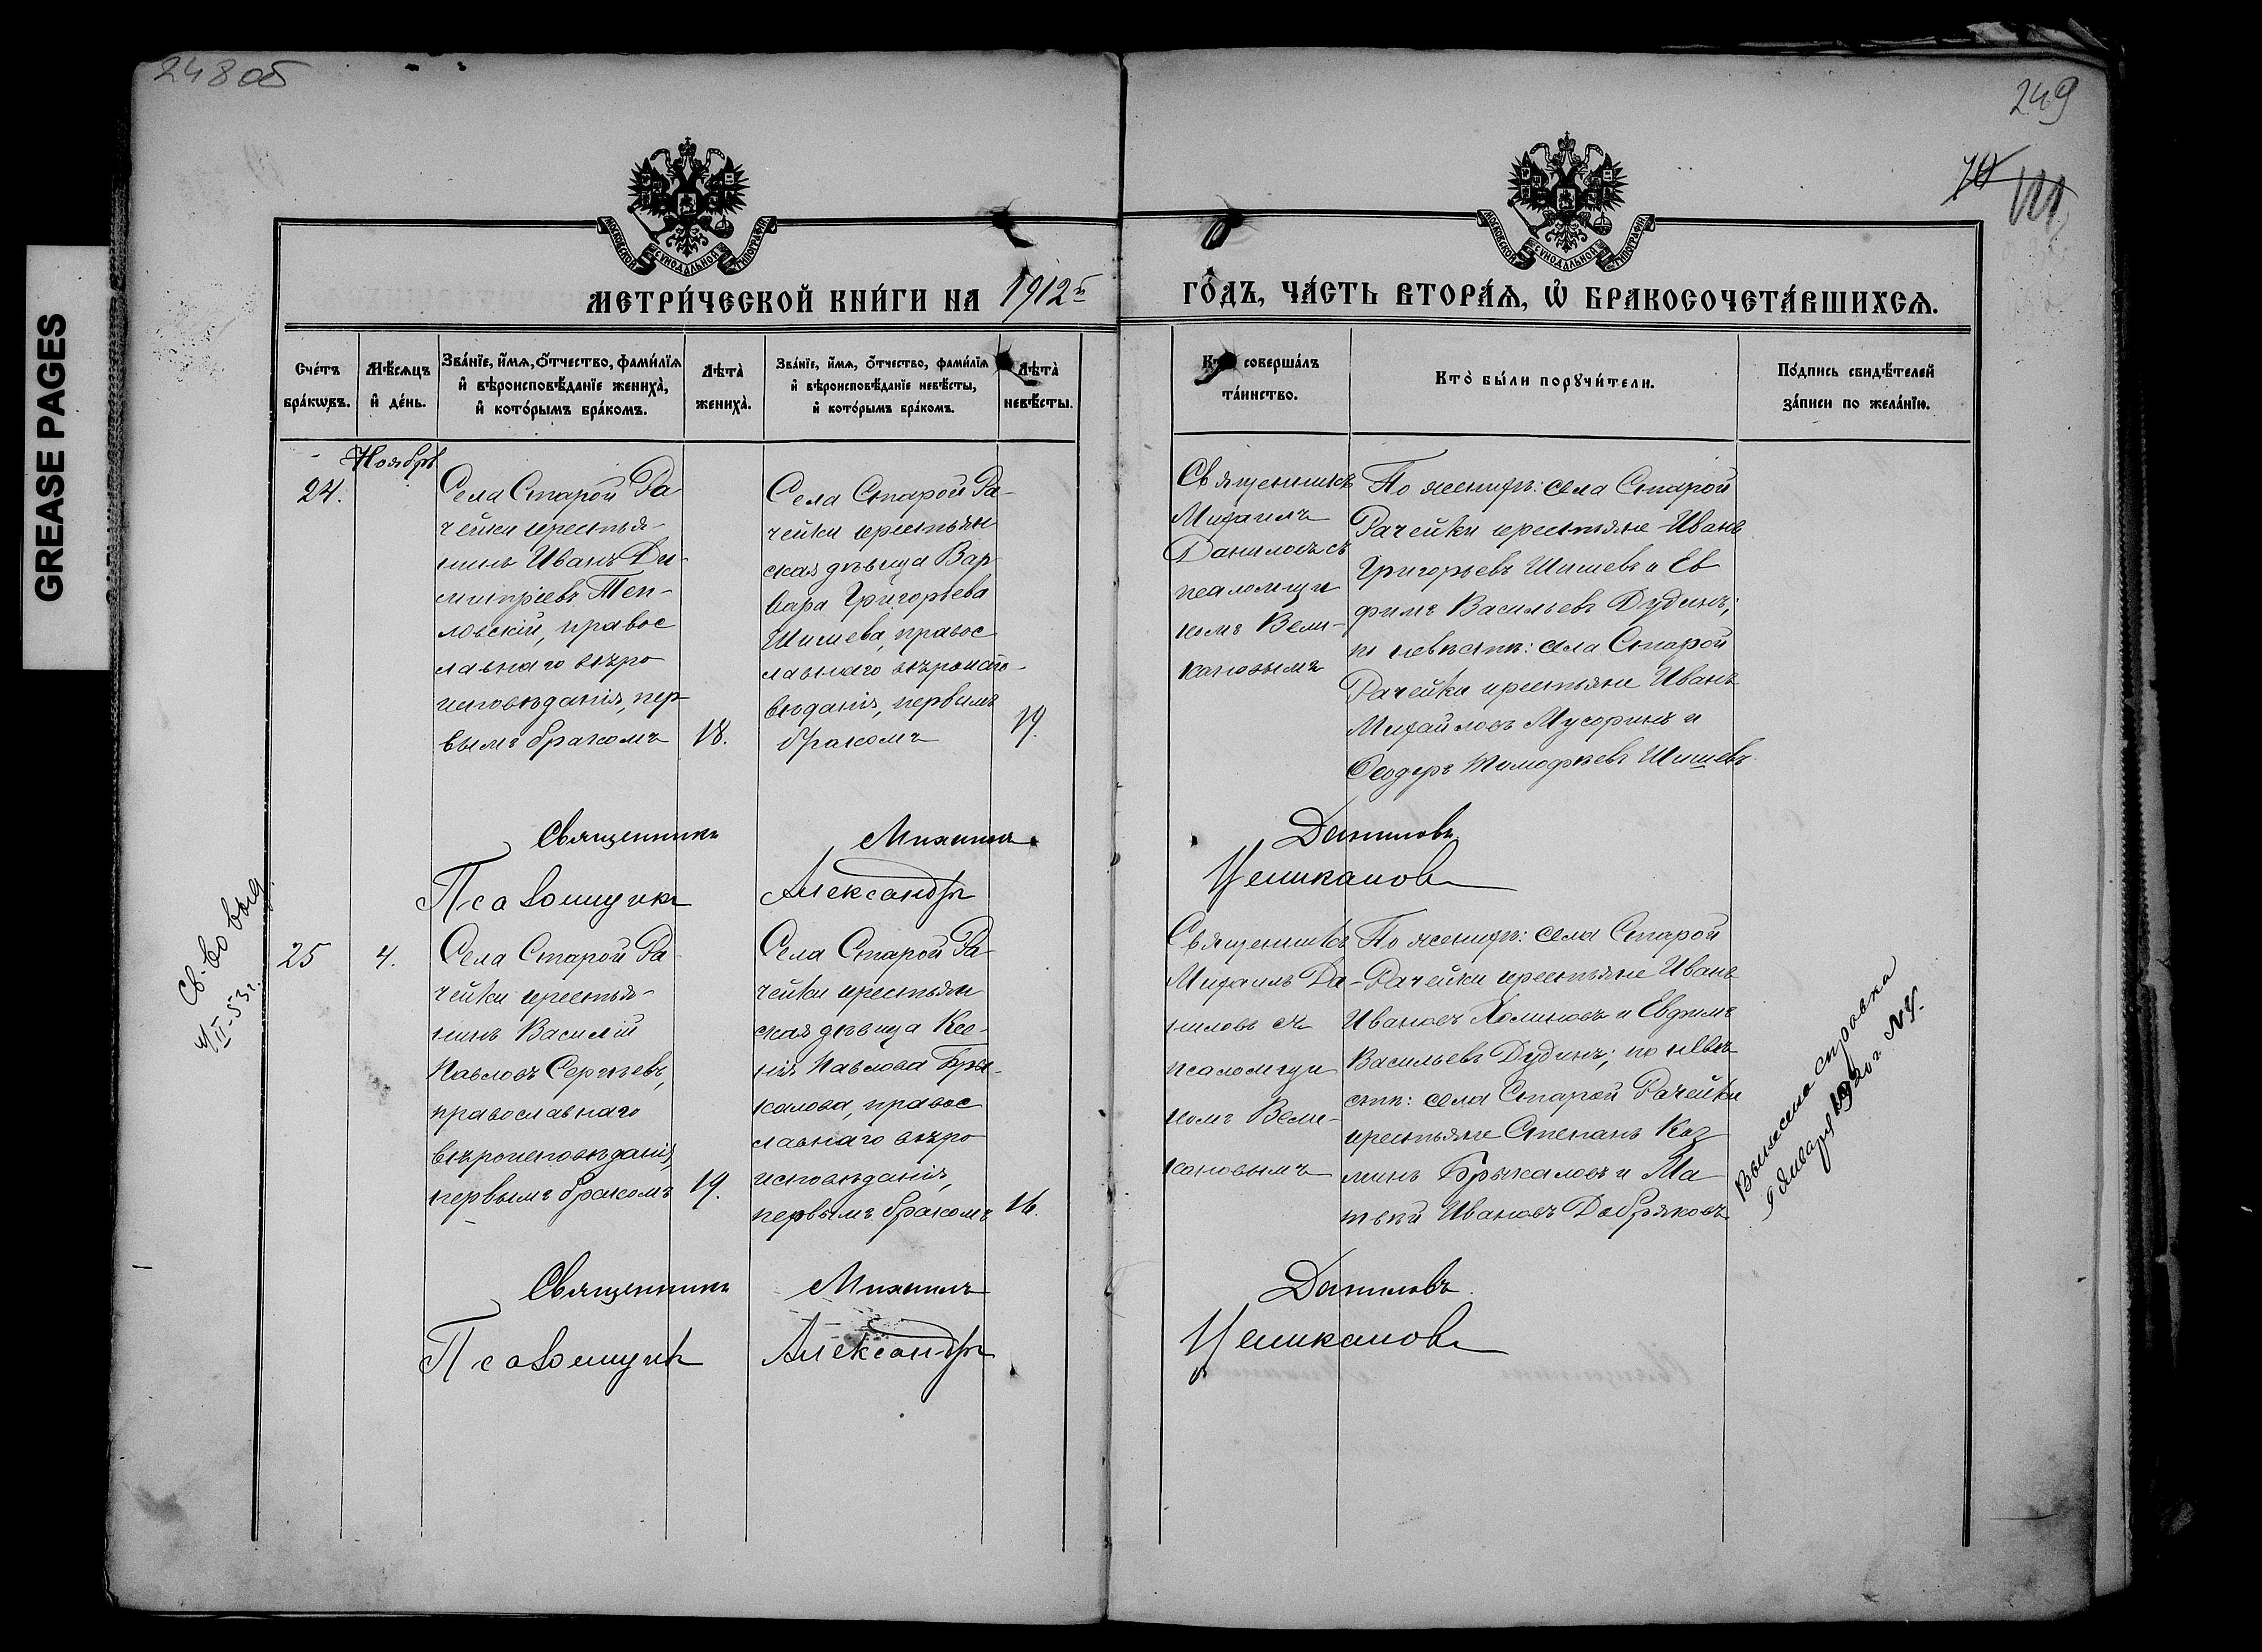 248 об
249
70
GREASE PAGES
МОСКОВСКОЙ СѴНОДАЛЬНОЙ ТИПОГРАФІИ
МОСКОВСКОЙ СѴНОДАЛЬНОЙ ТИПОГРАФІИ
МЕТРИ́ЧЕСКОЙ КНИ́ГИ НА 1912й ГО́ДЪ, ЧА́СТЬ ВТОРА́Ѧ, Ѡ҆ БРАКОСОЧЕТА́ВШИХСѦ.
Сче́тъ бра́кѡвъ.
Мѣ́сѧцъ и҆ де́нь.
Зва́нїе, и҆́мѧ, ѻ҆́тчество, фами́лїѧ
и҆ вѣроисповѣ́данїе жениха̀,
и҆ кото́рымъ бра́комъ.
Лѣта̀ жениха̀.
Зва́нїе, и҆́мѧ, ѻ҆́тчество, фами́лїѧ
и҆ вѣроисповѣ́данїе невѣ́сты,
и҆ кото́рымъ бра́комъ.
Лѣта̀ невѣ́сты.
Кто̀ соверша́лъ
та́инство.
Кто̀ бы́ли порꙋчи́тели.
По́дпись свидѣ́телей
за́писи по жела́нїю.
Ноябрь
24.
Села Старой Ра
чейки крестья-
нинъ Иванъ Ди-
митріевъ Теп-
ловскій, правос
лавнаго вѣро
исповѣданія, пер
вымъ бракомъ
18.
Села Старой Ра-
чейки крестьян
ская дѣвица Вар
вара Григорьева
Шишева, правос
лавнаго вѣроиспо-
вѣданія, первымъ
бракомъ
19.
Священникъ
Михаилъ
Даниловъ съ
псаломщи
комъ Вели-
кановымъ
По женихѣ: села Старой
Рачейки крестьяне Иванъ
Григорьевъ Шишевъ и Ев
фимъ Васильевъ Дудинъ;
по невѣстѣ: села Старой
Рачейки крестьяне Иванъ
Михайловъ Мусоринъ и
Ѳеодоръ Тимофѣевъ Шишевъ
Священникъ Михаилъ Даниловъ
Псаломщикъ Александръ Великановъ
Св-во выд.
25
4.
Села Старой Ра
чейки крестья-
нинъ Василій
Павловъ Сергѣевъ,
православнаго
вѣроисповѣданія,
первымъ бракомъ
19.
Села Старой Ра
чейки крестьян
ская дѣвица Ксе-
нія Павлова Бры-
калова, правос
лавнаго вѣро
исповѣданія,
первымъ бракомъ
16.
Священникъ
Михаилъ Да-
ниловъ съ
псаломщи
комъ Вели-
кановымъ
По женихѣ: села Старой
Рачейки крестьяне Иванъ
Ивановъ Холиновъ и Евфимъ
Васильевъ Дудинъ; по невѣ
стѣ: села Старой Рачейки
крестьяне Степанъ Коз
минъ Брыкаловъ и Ма
твѣй Ивановъ Добряковъ
справка
9 января 1920 г. №
Священникъ Михаилъ Даниловъ
Псаломщикъ Александръ Великановъ